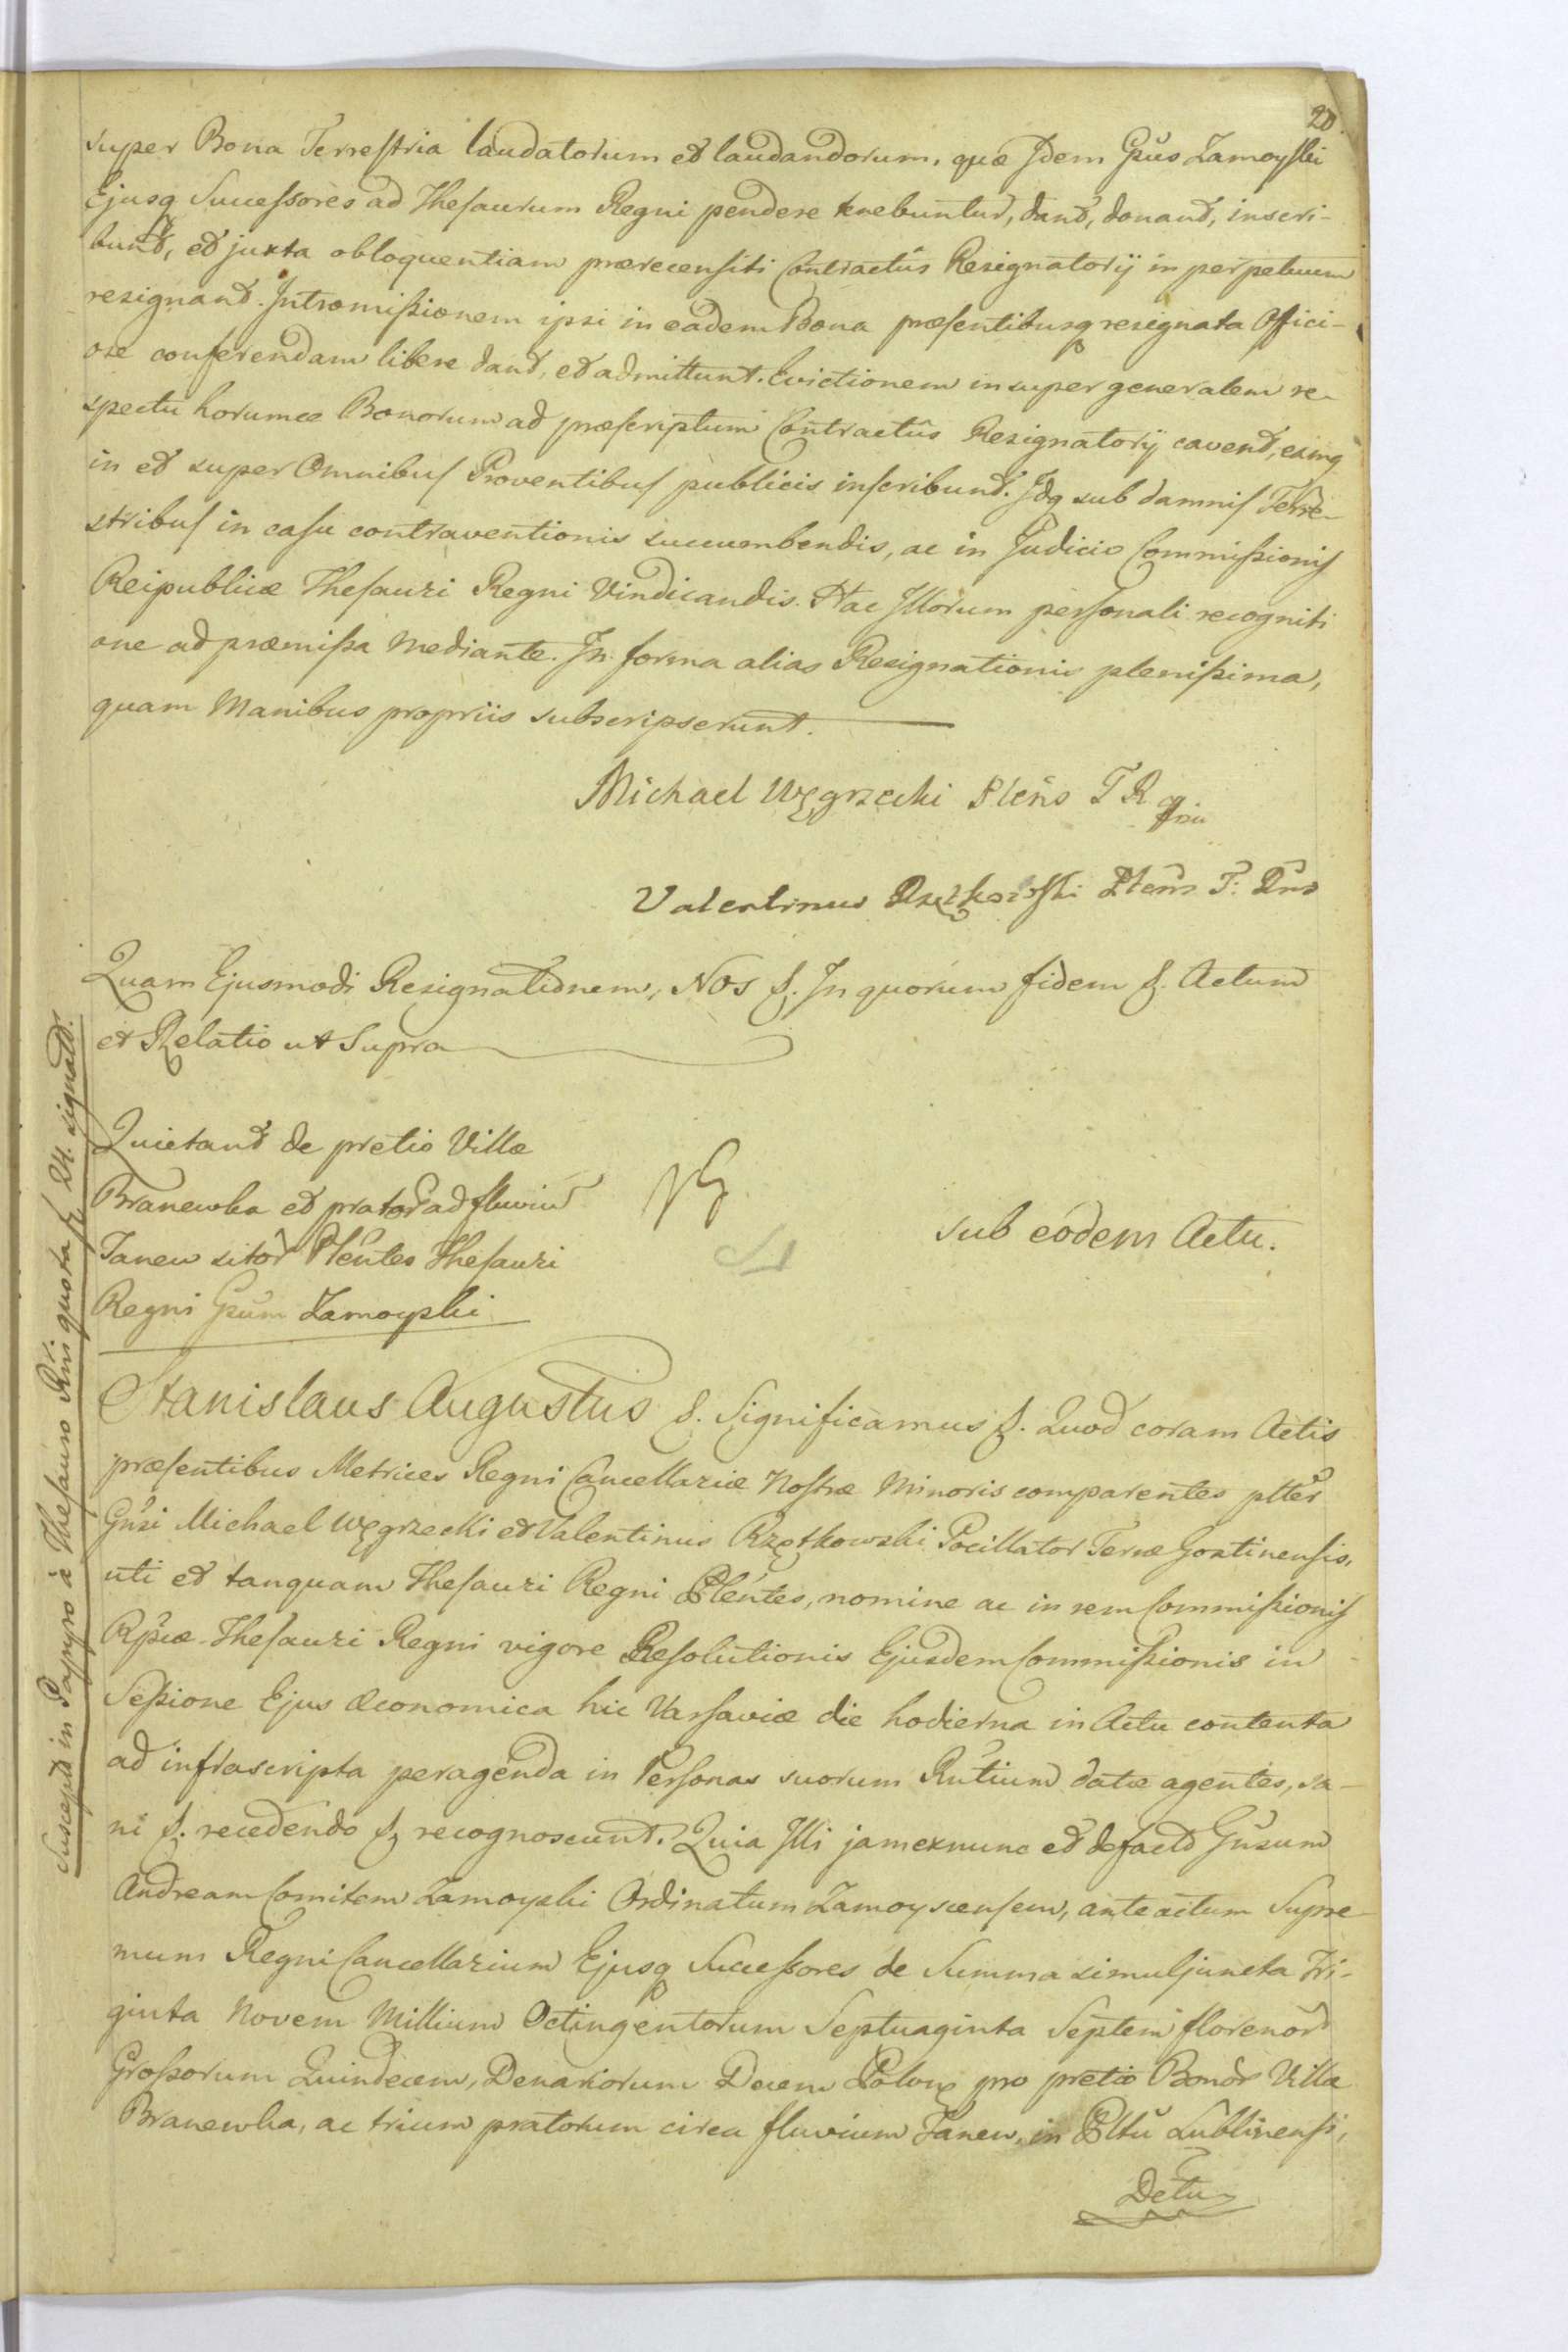 20.
super Bona Terrestria laudatorum et laudandorum, quæ Idem Gnus Zamoyski
Ejusq Successores ad Thesaurum Regni pendere tenebuntur, dant, donant, inscri-
bunt, et juxta obloquentiam prærecensiti Contractûs Resignatorij in perpetuum
resignant. Intromissionem ipsi in eadem Bona præsentibusq resignata Offici-
ose conferendam libere dant, et admittunt. Evictionem insuper generalem re-
spectu horumce Bonorum ad præscriptum Contractûs Resignatorij cavent, eamq
in et super Omnibus Proventibus publicis inscribunt. Idq sub damnis Terre-
stribus in casu contraventionis succumbendis, ac in Judicio Commissionis
Reipublicæ Thesauri Regni Vindicandis. Hac Illorum personali recogniti
one ad præmissa mediante. In forma alias Resignationis plenissima,
quam Manibus propriis subscripserunt.
Michael Węgrzecki Plens T R
Valentinus Rzętkowski Plens T:
Quam Ejusmodi Resignationem, Nos &. In quorum fidem &. Actum
et Relatio ut Supra
Quietant de pretio Villæ
Branewka et prator ad fluviu
Tanew sitor Plentes Thesauri
Regni Gnum Zamoyski
sub eodem Actu.
Stanislaus Augustus &. Significamus &. Quod coram Actis
præsentibus Metrices Regni Cancellariæ Nostræ Minoris comparentes plter
Gnsi Michael Węgrzecki et Valentinus Rzętkowski Pocillator Terræ Gostinensis,
uti et tanquam Thesauri Regni Plentes, nomine ac in rem Commissionis
Rpcæ Thesauri Regni vigore Resolutionis Ejusdem Commissionis in
Sessione Ejus Œconomica hic Varsaviæ die hodierna in Actu contenta
ad infrascripta peragenda in Personas suorum Rntium datæ agentes, sa-
ni &. recedendo & recognoscunt. Quia Illi jam exnunc et defacto Gnsum
Andream Comitem Zamoyski Ordinatum Zamoyscensem, anteactum Supre-
mum Regni Cancellarium Ejusq Successores de Summa simuljuncta Tri-
ginta Novem Millium Octingentorum Septuaginta Septem florenor
Grossorum Quindecem, Denariorum Decem Polon pro pretio Bonor Villæ
Branewka, ac trium pratorum circa fluvium Tanew, in Pltu Lublinensi,
Suscepta in Papyro à Thesauro Rni quota 24. signato.